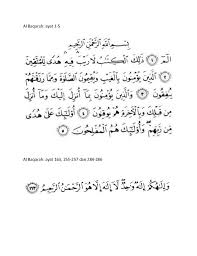 Al Baqarah: ayat 1-5
بِسْمِ اللَّهِ الرَّحْمَٰنِ الرَّحِيمِ
الٓمٓ ﴿١﴾ ذَٰلِكَ ٱلْكِتَٰبُ لَا رَيْبَ فِيهِ هُدًى لِّلْمُتَّقِينَ
﴿٢﴾ ٱلَّذِينَ يُؤْمِنُونَ بِٱلْغَيْبِ وَيُقِيمُونَ ٱلصَّلَوٰةَ وَمِمَّا رَزَقْنَٰهُمْ
يُنفِقُونَ ﴿٣﴾ وَٱلَّذِينَ يُؤْمِنُونَ بِمَآ أُنزِلَ إِلَيْكَ وَمَآ أُنزِلَ
مِن قَبْلِكَ وَبِٱلْءَاخِرَةِ هُمْ يُوقِنُونَ ﴿٤﴾ أُو۟لَٰٓئِكَ عَلَىٰ هُدًى
مِّن رَّبِّهِمْ وَأُو۟لَٰٓئِكَ هُمُ ٱلْمُفْلِحُونَ ﴿٥﴾
Al Baqarah: ayat 163, 255-257 dan 284-286
وَإِلَٰهُكُمْ إِلَٰهٌ وَٰحِدٌ لَّآ إِلَٰهَ إِلَّا هُوَ ٱلرَّحْمَٰنُ ٱلرَّحِيمُ ﴿١٦٣﴾